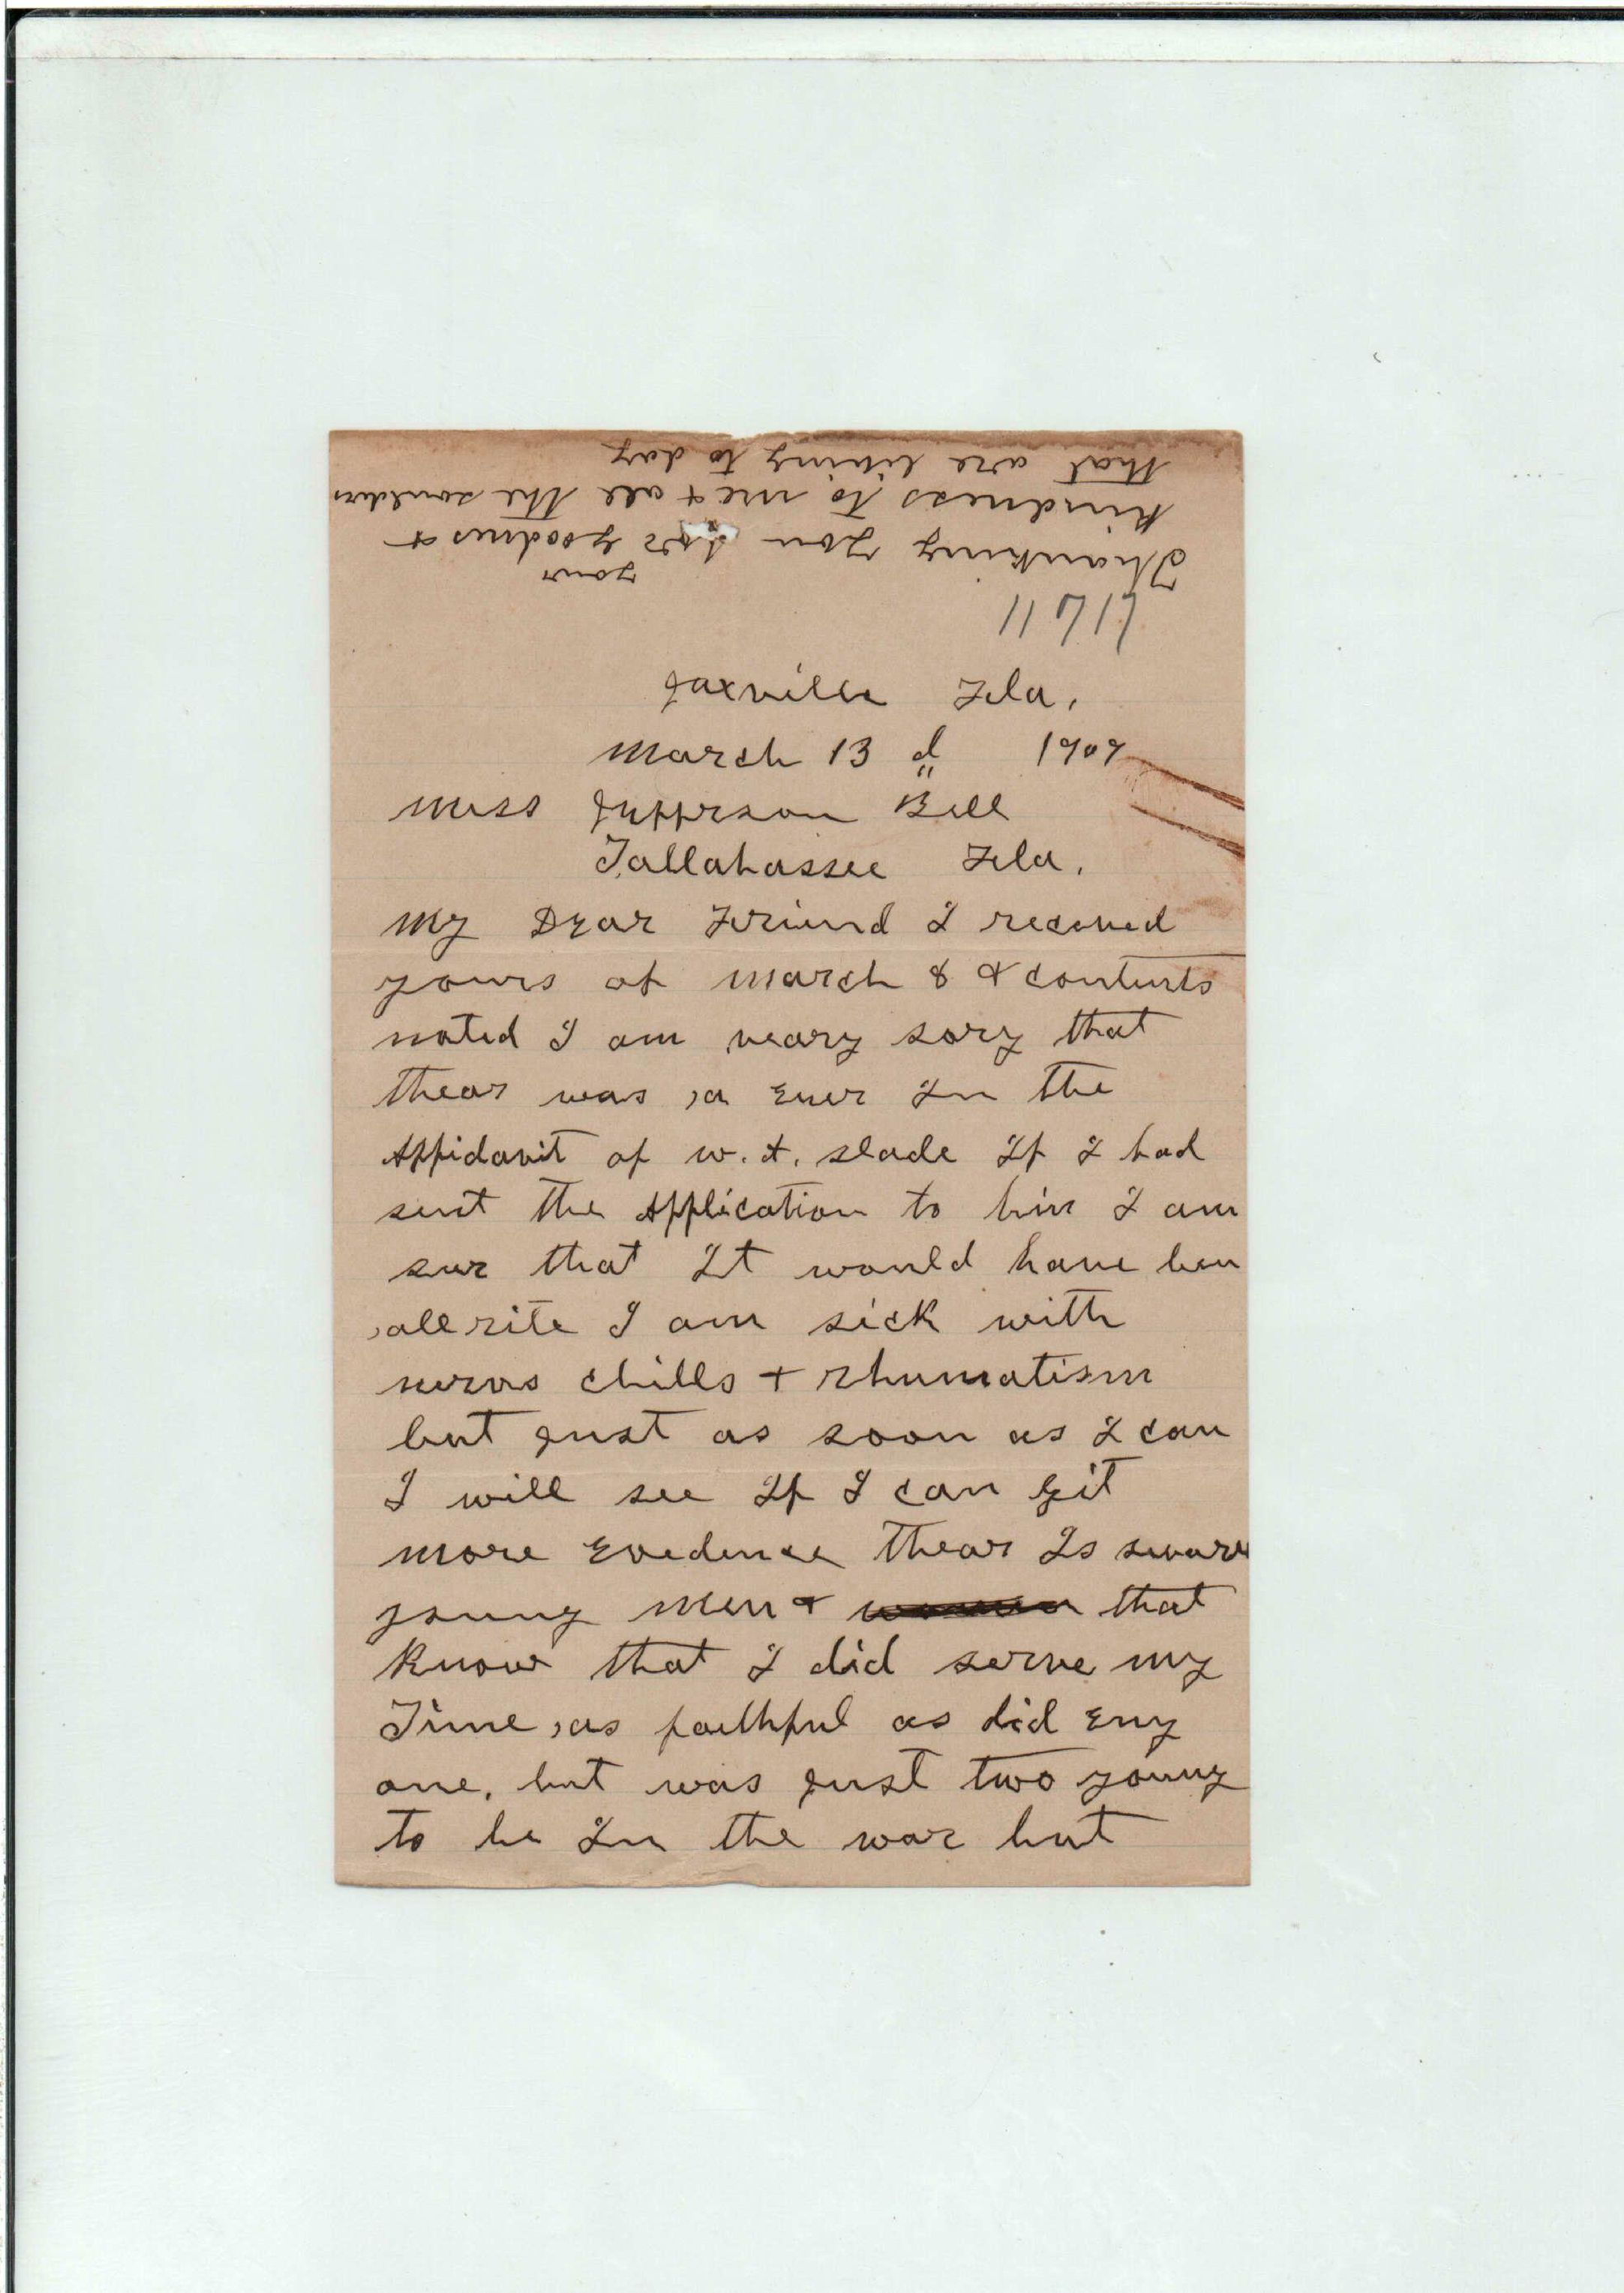 Thanking you for your goodness &
kindness to me & all the souldirs
that are living to day
11717
Jaxville Fla.
March 13 d 1909
Miss Jeffrson Bell
Tallahassee Fla.
My Dear Friend I receved
yours of march 8 & contents
noted I am veary sory that
thear was a Erer In the
Affidavit of W. T. Slade If I had
sent the Application to him I am
sur that It would have ben
all rite I am sick with
nervs chills + rhumatism
but Just as soon as I can
I will see If I can Git
more Evedence thear Is
young Men & women that
Know that I did serve my
Time as faithful as did Eny
one, but was Just two young
to be In the war but